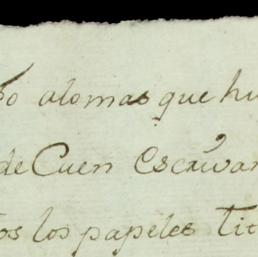 so alomas que hu
de Cuen Escrivan
os los papeles tic